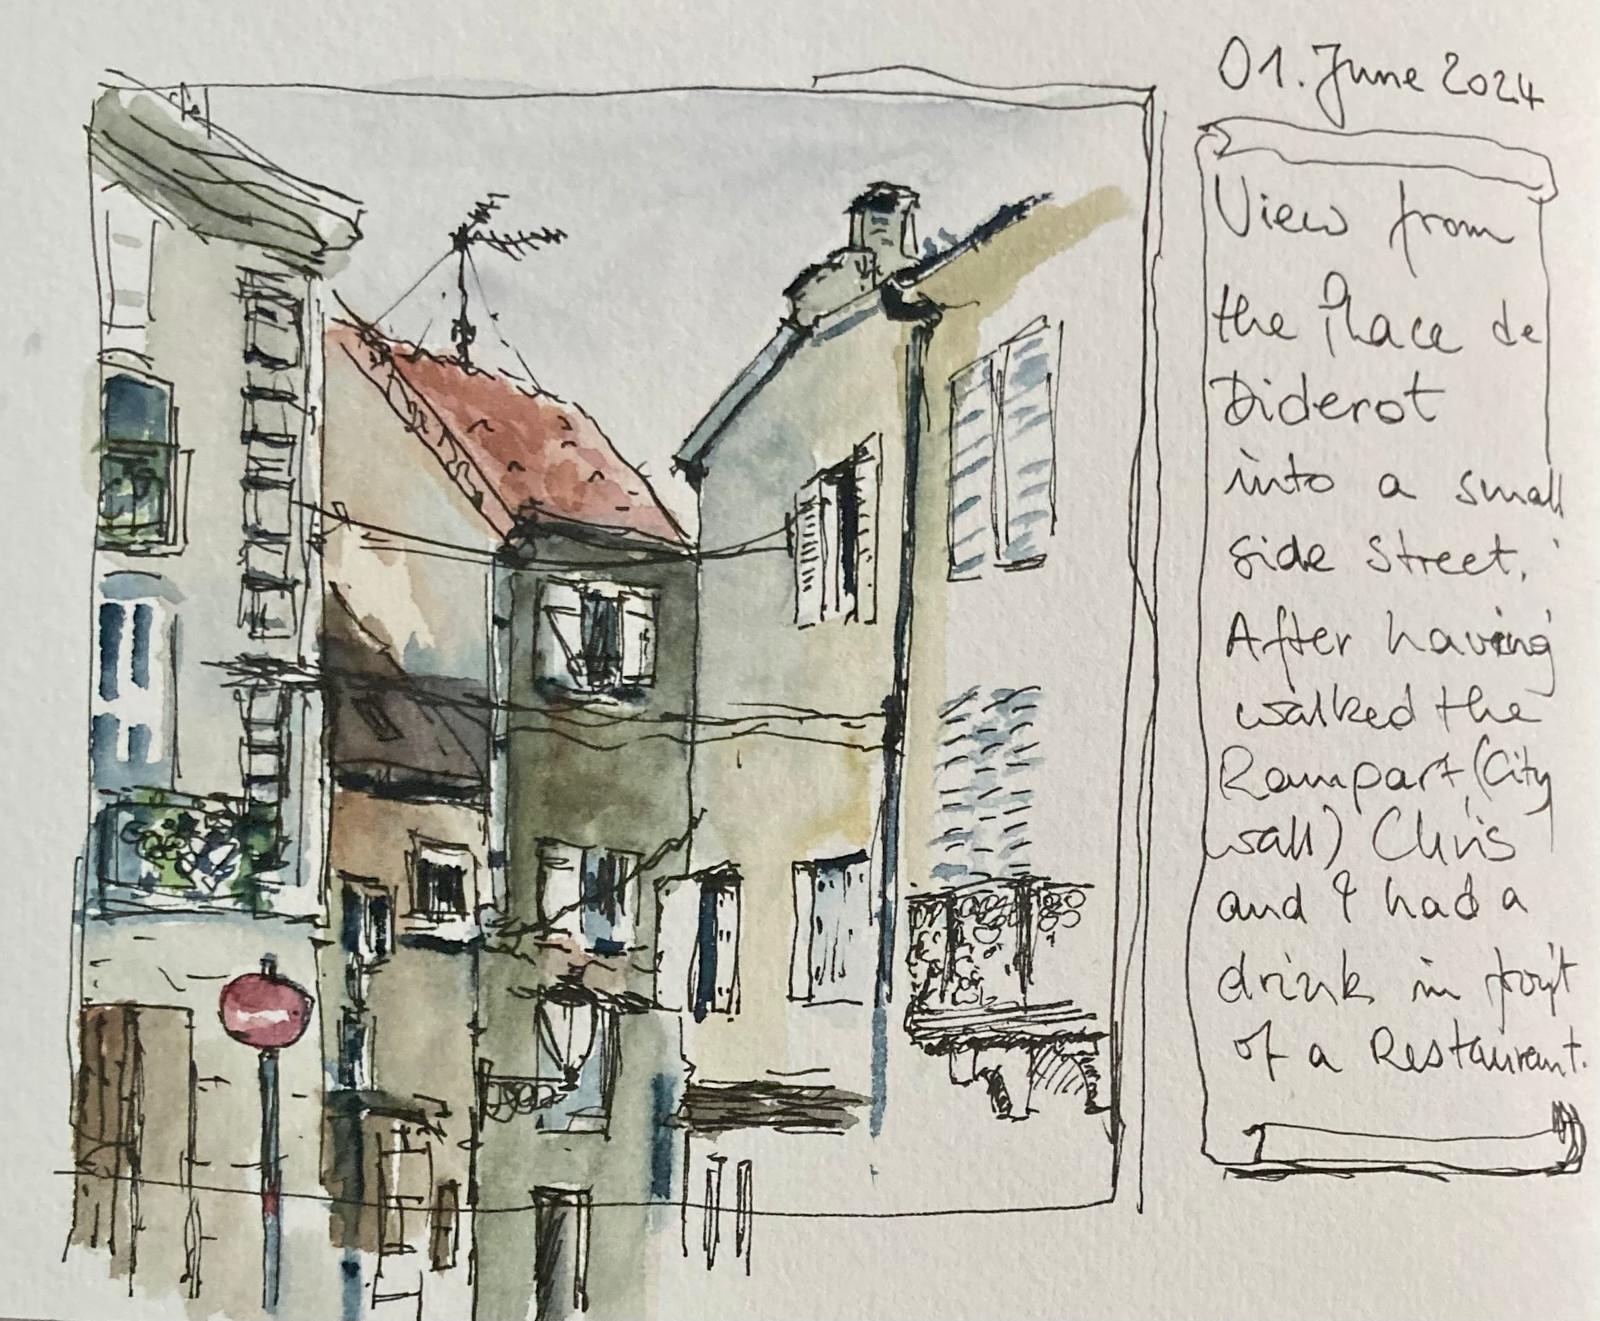 01. June 2024
View from
the Place de
Diderot
into a small
side street.
After having
walked the
Rampart (City
wall) Chris
and I had a
drink in front
of a Restaurant.